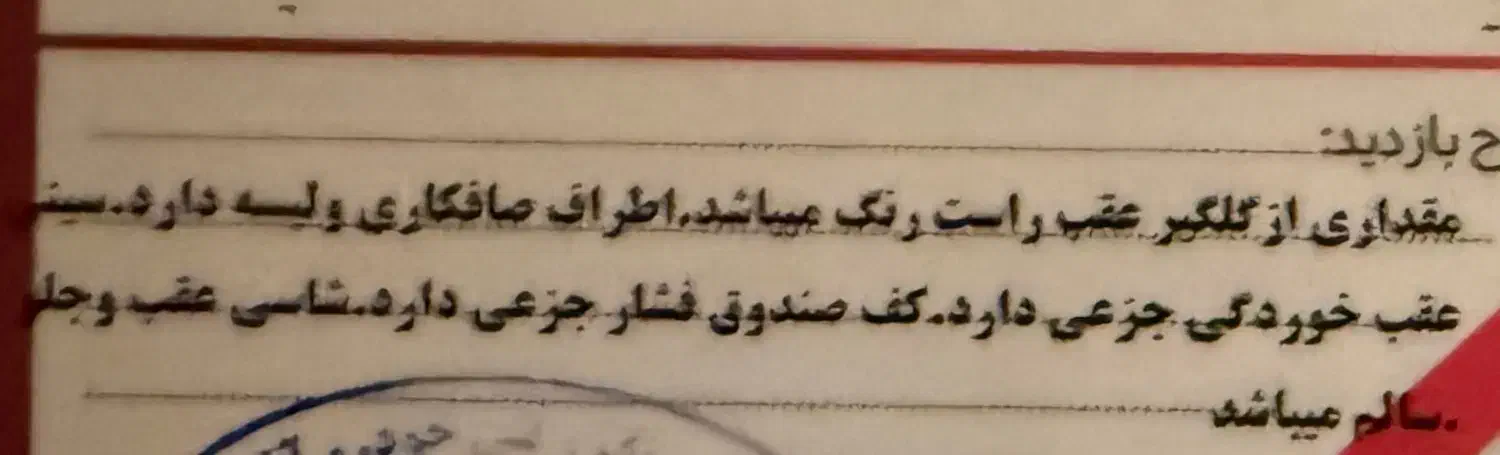 ح بازدید:
مقداری از گلگیر عقب راست رنگ میباشد.اطراف صافکاری ولیسه دارد.سینی
عقب خوردگی جزعی دارد.کف صندوق فشار جزعی دارد.شاسی عقب وجلو
.سالم میباشد